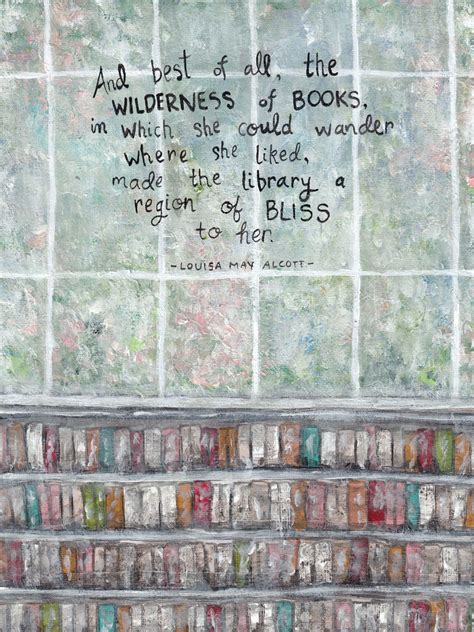 And best of all, the
WILDERNESS of BOOKS,
in which she could wander
where she liked,
made the library a
region of BLISS
to her.
- LOUISA MAY ALCOTT -